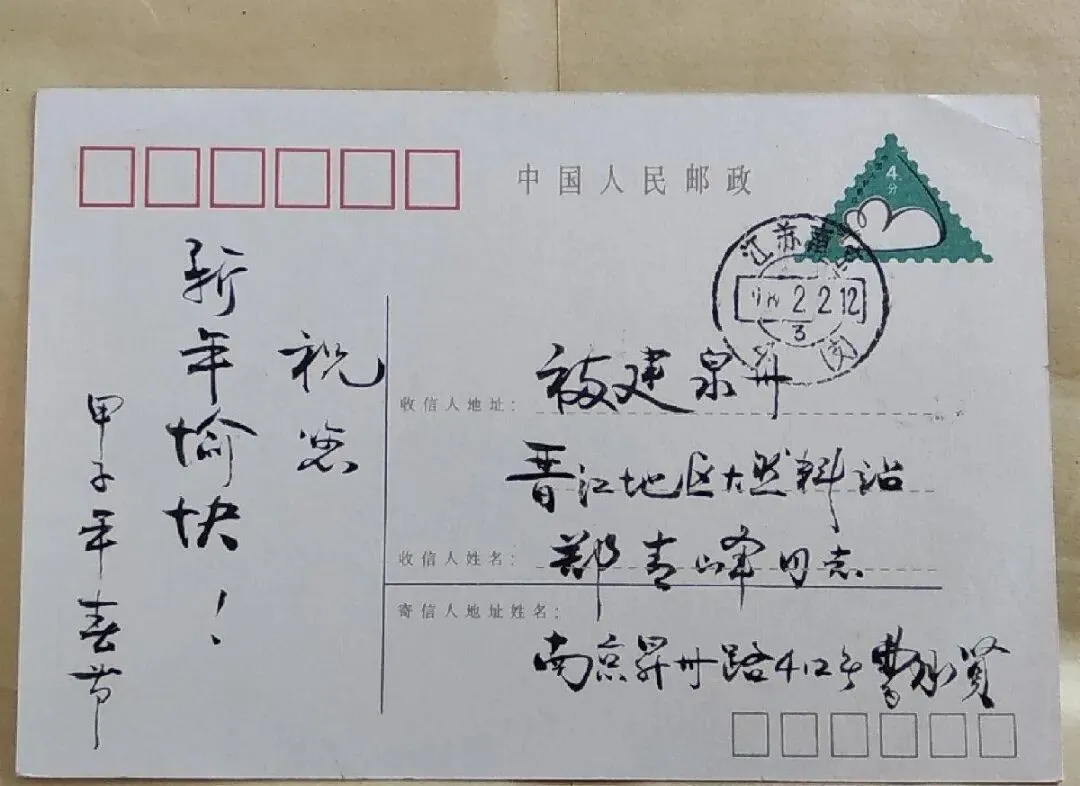 中国人民邮政
4
分
江苏南京
2 2 12
3
收信人地址：
福建泉州
晋江地区燃料站
收信人姓名：
郑青峰同志
寄信人地址姓名：
南京昇州路412号
贤
祝您
新年愉快！
甲子年春节